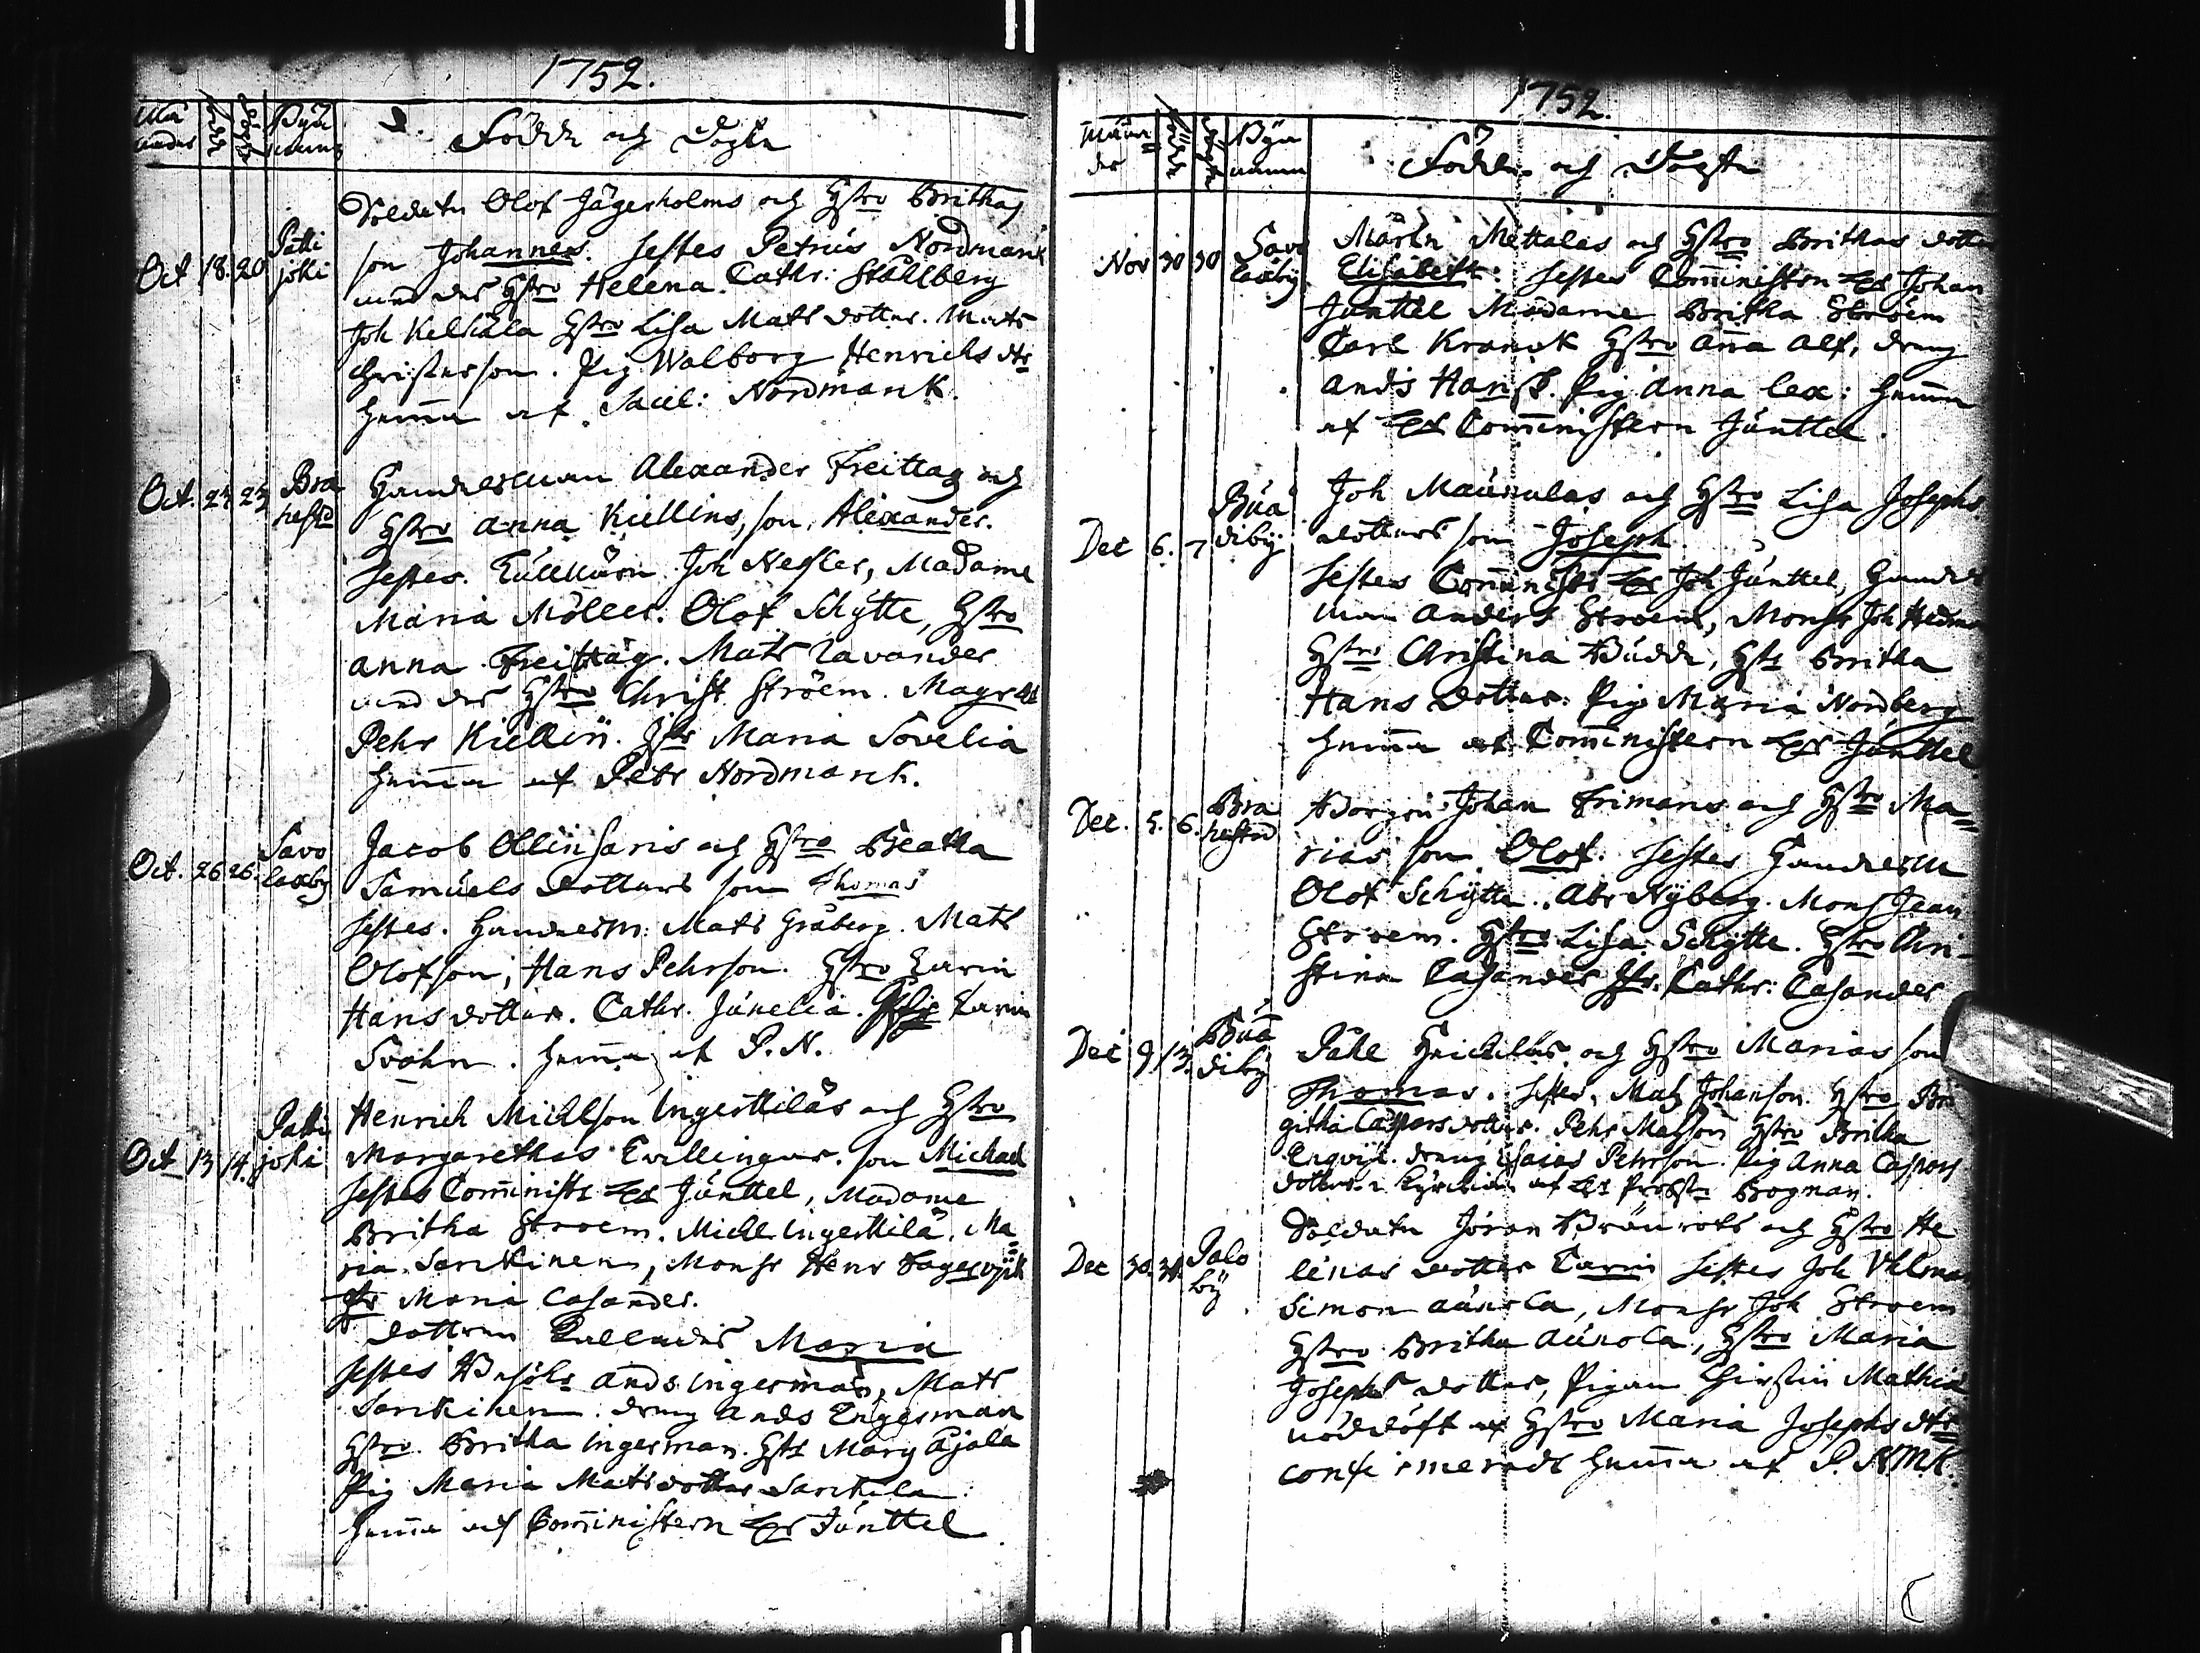 1752.
Födde och Döpte
Soldaten Olof Jägerholms och Hstro Brithas
Oct 18. 20 Patti joki son Johannes. testes Petrus Nordmank
med dess Hstro Helena. Cathr: Ståhlberg
Joh Kelhäla Hstro Lisa Matsdotter. Mats
Christersson. Pig. Walborg Henrichs dtr
hemma af Sacel: Nordmank.
Oct. 23 23 Bra hestad Handelsman Alexander Freittag och
Hstro Anna Kiellins, son, Alexander.
testes. Joh Nessler, Madame
Maria Möller. Olof Schytte, Hstro
Anna Freittag. Mats Lavander
med dess Hstro Christ Ström. Magr
Pehr Kiellin. Jfr Maria Sovelia
hemma af Petr Nordmanck.
Oct. 26 26. Savo laxby Jacob Ollinsaris och Hstro Beatha
Samuels dotters son Thomas
testes. Handelsm: Mats Gråberg. Mats
Olofson, Hans Pehrson. Hstro Karin
Hansdotter. Cathr. Junelia. Karin
Svahn. hemma af P. N.
Oct 13 14. Patti joki Henrich Michlson Ingerttiläs och Hstro
Margarethas Tvillingar. son Michael
testes Comministr Hr Junttel, Madame
Britha Stroem. Michl Ingerttilä. Ma=
ria Sarckinen, Monsr Henr Fagervik
Jfr Maria Casander.
dottren kallades Maria
testes Ands Ingerman, Mats
Sarckinen. dreng Ands Engesman
Hstro. Britha Ingerman. Hst Marg Äjälä
Pig Maria Matsdotter Sarckila
hemma af Comministern Hr Junttel
1752.
Måna der Byn namn Födde och Döpte
Nov 30 30 Savo laxby Mårtn Mettälas och Hstro Brithas dotter
Elisabeth: testes Comministern Hr Johan
Junttel Madame Britha Stroem
Carl Kranck Hstro Anna Alf, dreng
Ands Hanss. Pig Anna Lex: hemma
af Hr Comministern Junttel.
Dec 6. 7 Bua diby Joh Maunulas och Hstro Lisa Josephs
dotters son Joseph
testes Comministr Hr Joh Junttel, Handels
man Anders Stroem, Monsr Joh Hedman
Hstro Christina Budde, Hst Britha
Hans dotter. Pig Maria Nordberg
hemma af Comministern Hr Junttel
Dec. 5. 6. Bra hestad Borgen Johan Frimans och Hstro Ma=
rias son Olof. testes Handelsm
Olof Schytte. Abr Nyberg. Mons Jean
Stroem. Hstro Lisa Schytte. Hstro Chri-
stina Casander Jfr. Cathr: Casander
Dec 9 13. Bua diby Påhl Heickiläs och Hstro Marias son
Thomas. testes, Matz Johanson. Hstro Bri
githa Caspersdotter. Pehr Matson Hstro Britha
Enqvist. dreng Isacas Pehrson. Pig Anna Caspers
dotter. i Kyrkian af Hr Probst Bognan.
Dec 30. 31. Palo by Soldaten Jöran Brunrots och Hstro He
lenas dotter Carin testes Joh Uhlman
Simon Aunola, Monsr Joh Stroem
Hstro Britha Aunola, Hstro Maria
Josephs dotter, Pigan Christin Mathia
nöddöpt af Hstro Maria Josephs dtr
confirmerade hemma af P. NMK.